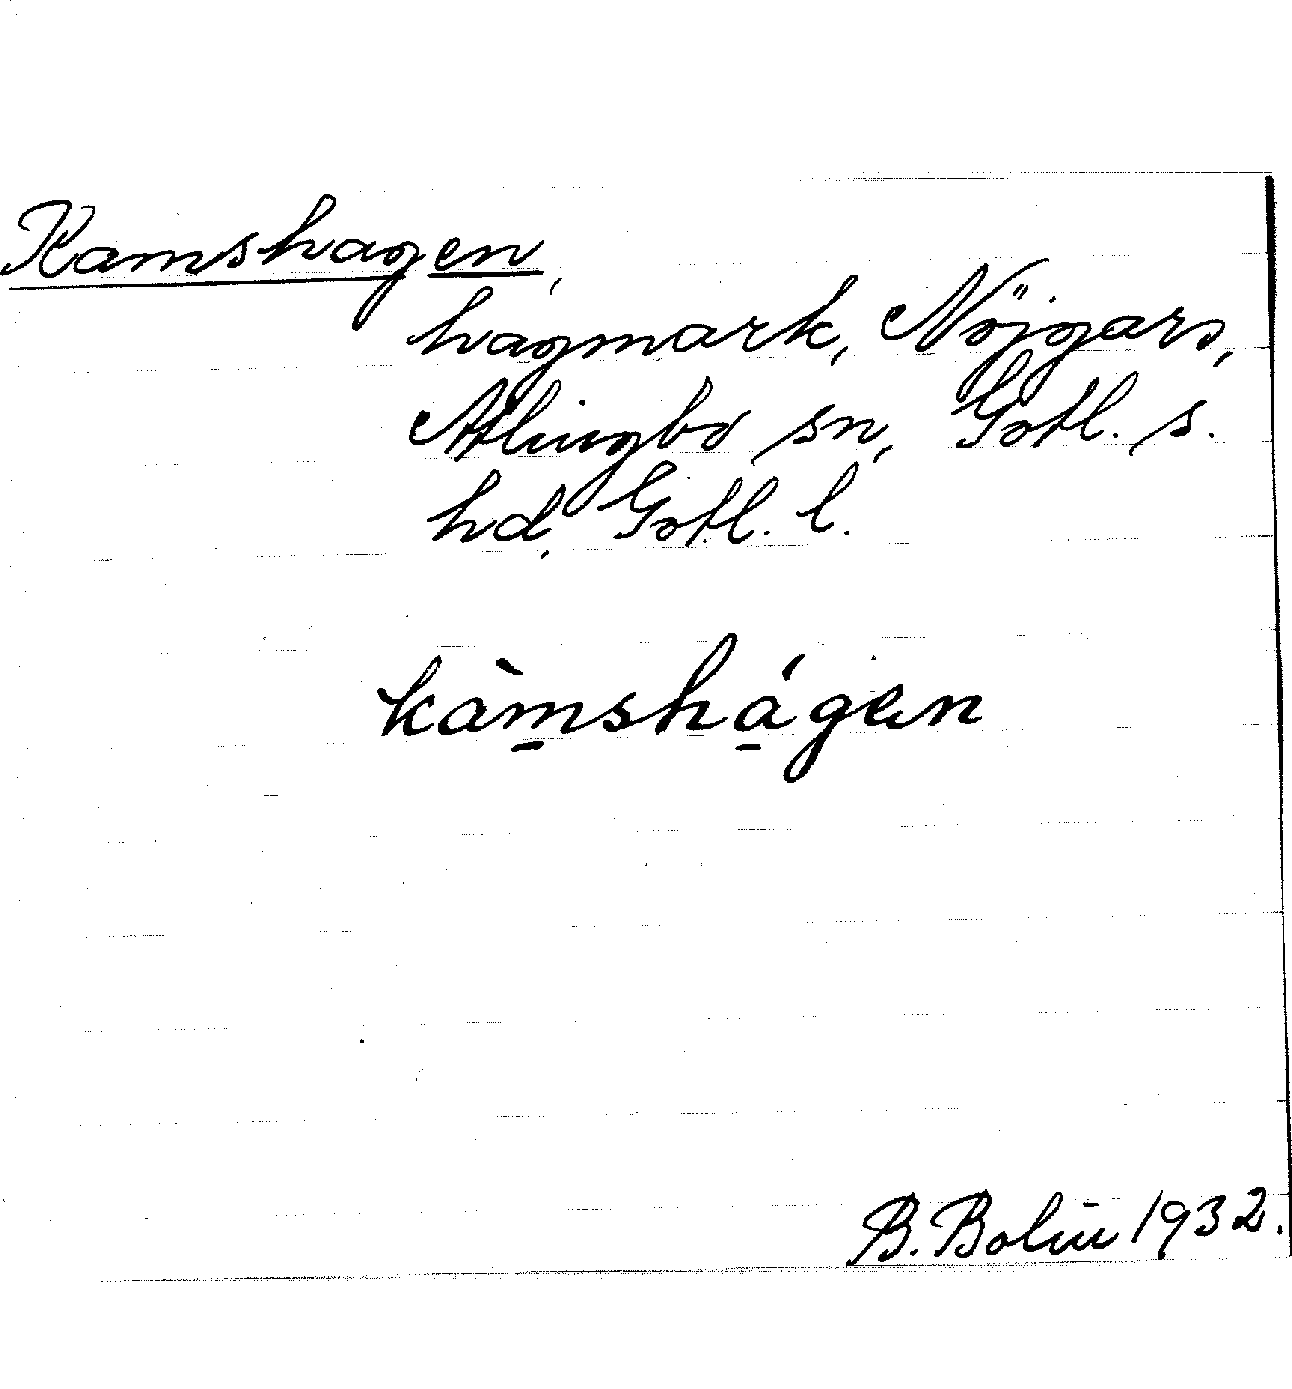 Kamshagen,
hagmark, Nöjgars,
Atlingbo sn, Gotl. s.
hd, Gotl. l.
kàm̱shá̱gen
B. Bolin 1932.